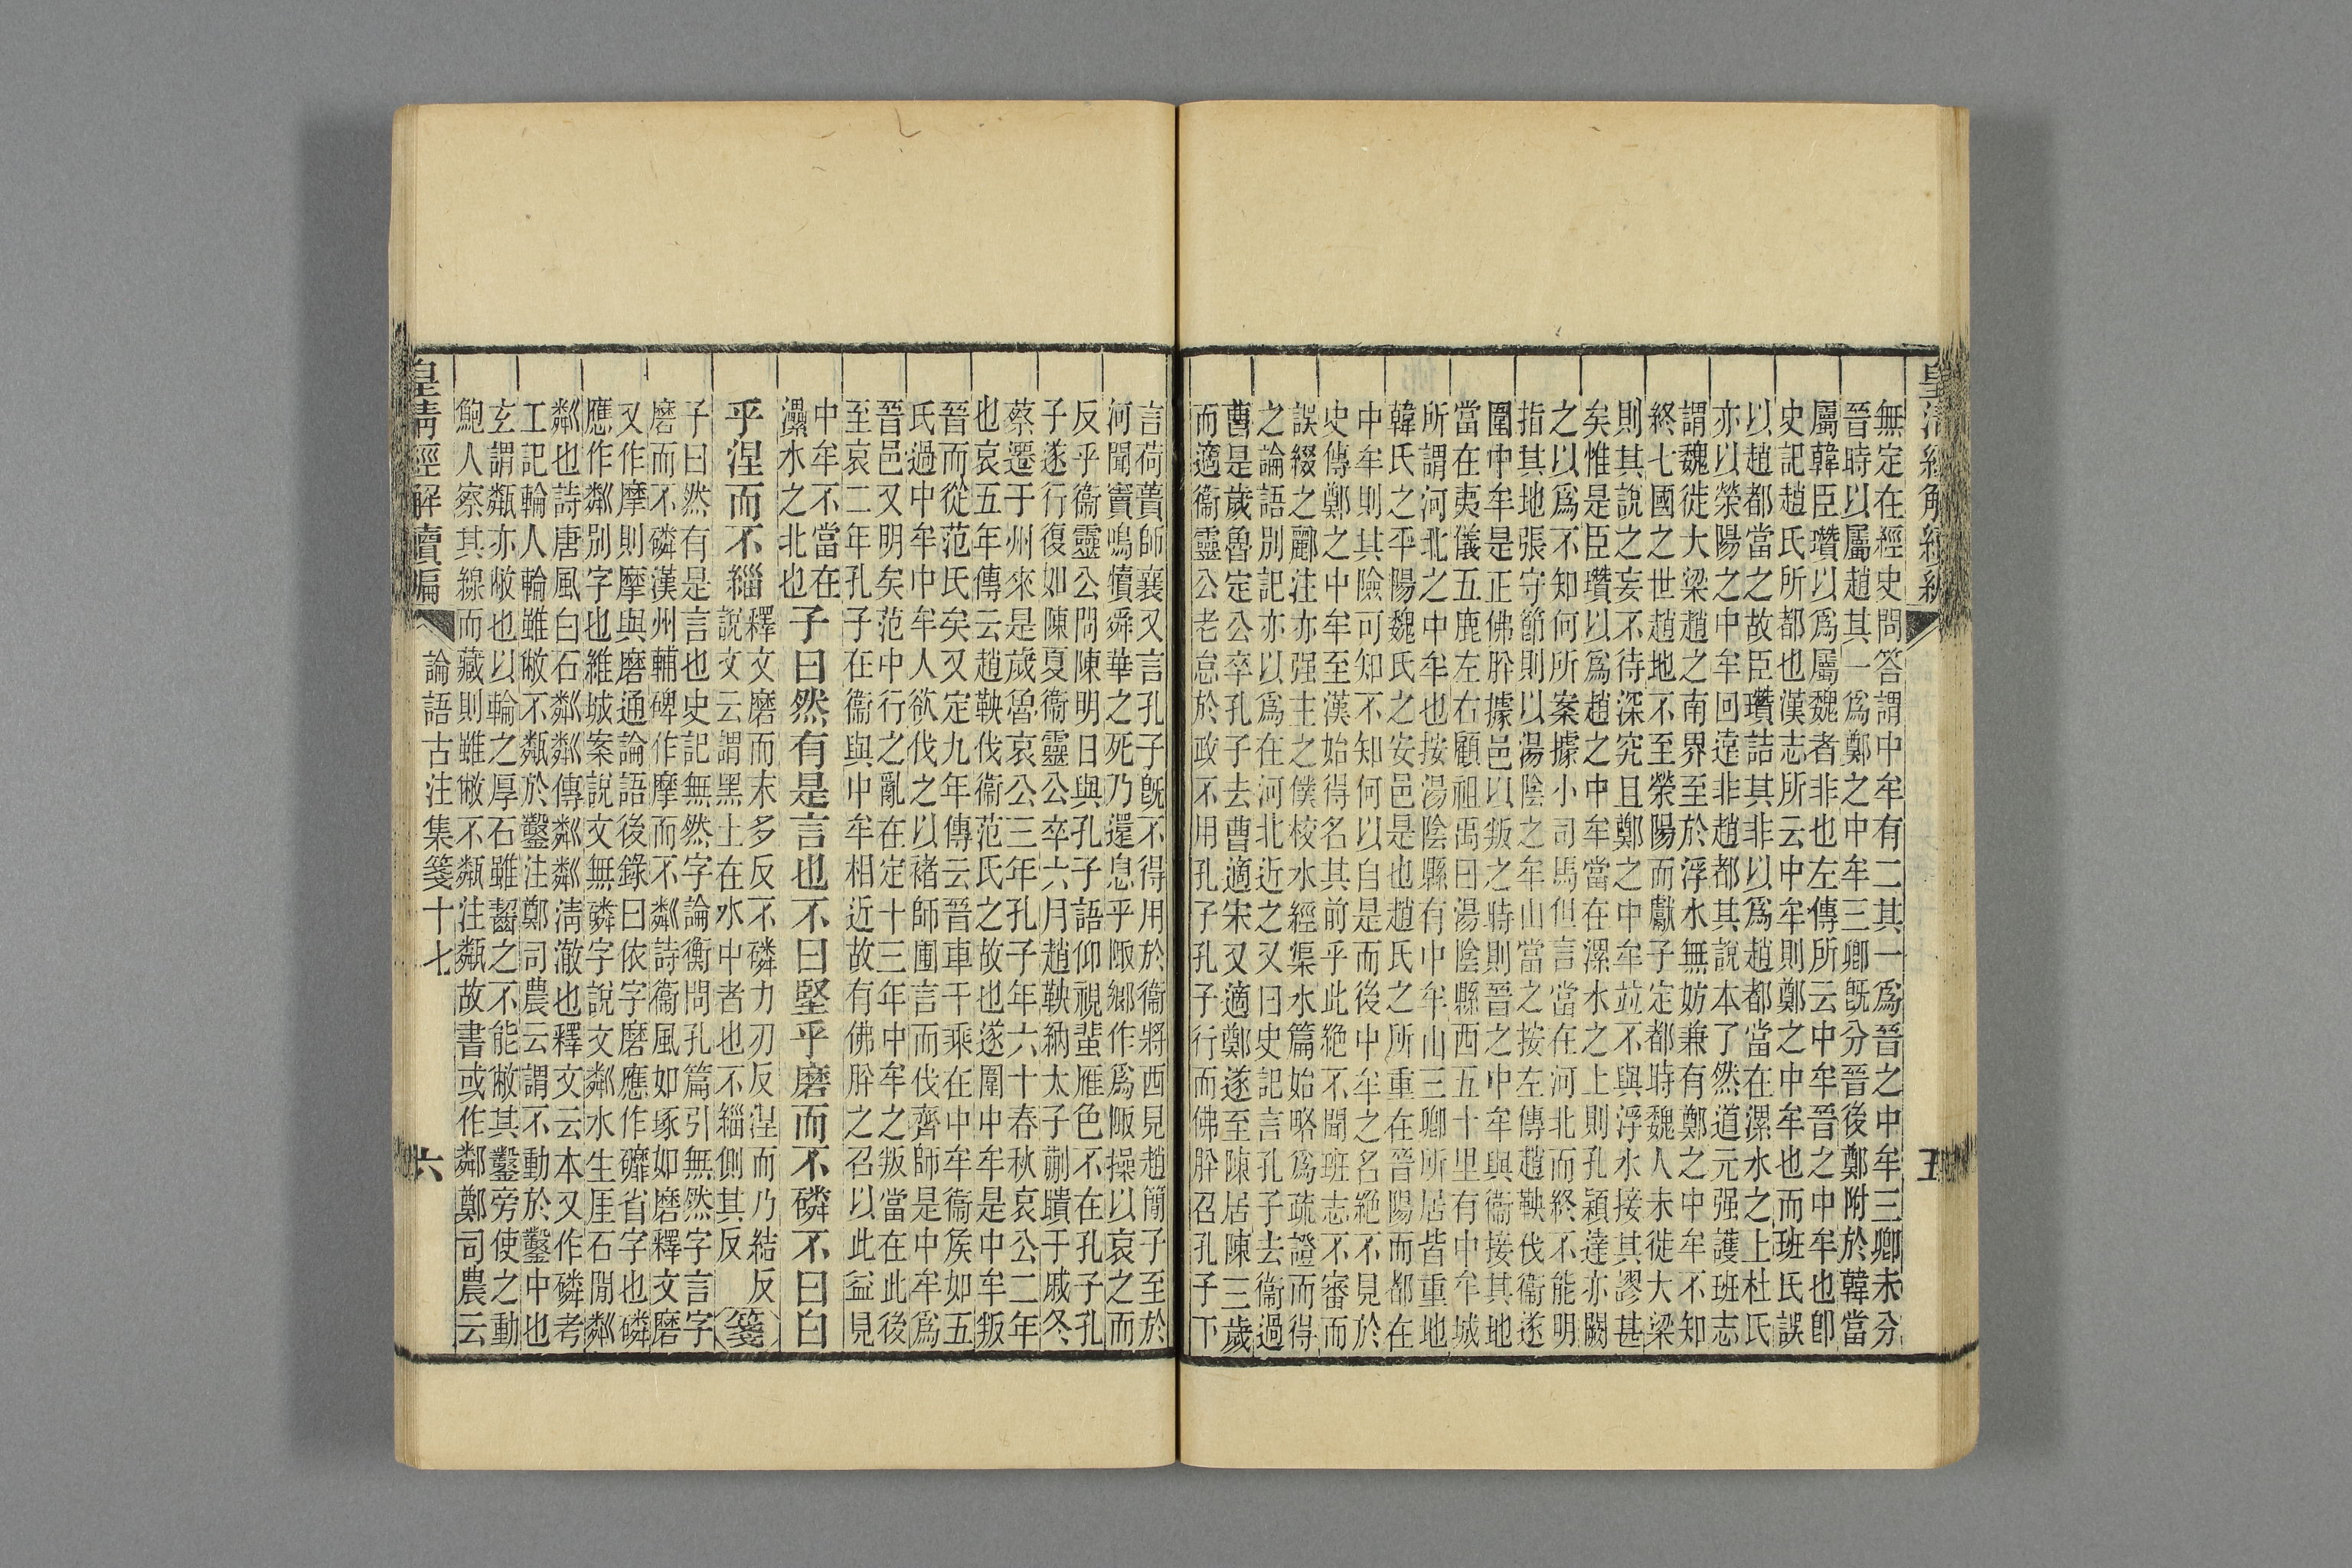 無定在經史問答謂中牟有二其一爲晉之中牟三卿未分
晉時以屬趙其一爲鄭之中牟三卿旣分晉後鄭附於韓當
屬韓臣瓚以爲屬魏者非也左傳所云中牟晉之中牟也卽
史記趙氏所都也漢志所云中牟則鄭之中牟也而班氏誤
以趙都當之故臣瓚詰其非以爲趙都當在漯水之上杜氏
亦以滎陽之中牟回遠非趙都其說本了然道元强護班志
謂魏徙大梁趙之南界至於浮水無妨兼有鄭之中牟不知
終七國之世趙地不至滎陽而獻子定都時魏人未徙大梁
則其說之妄不待深究且鄭之中牟竝不與浮水接其謬甚
矣惟是臣瓚以爲趙之中牟當在漯水之上則孔穎達亦闕
之以爲不知何所案據小司馬但言當在河北而終不能明
指其地張守節則以湯陰之牟山當之按左傳趙鞅伐衞遂
圍中牟是正佛肸據邑以叛之時則晉之中牟與衞接其地
當在夷儀五鹿左右顧祖禹曰湯陰縣西五十里有中牟城
所謂河北之中牟也按湯陰縣有中牟山三卿所居皆重地
韓氏之平陽魏氏之安邑是也趙氏之所重在晉陽而都在
中牟則其險可知不知何以自是而後中牟之名絕不見於
史傳鄭之中牟至漢始得名其前乎此絕不聞班志不審而
誤綴之酈注亦强主之僕校水經集水篇始略爲疏證而得
之論語別記亦以爲在河北近之又曰史記言孔子去衞過
曹是歲魯定公卒孔子去曹適宋又適鄭遂至陳居陳三歲
而適衞靈公老怠於政不用孔子孔子行而佛肸召孔子下
言荷蕢師襄又言孔子旣不得用於衞將西見趙簡子至於
河聞竇鳴犢舜華之死乃還息乎陬鄉作爲陬操以哀之而
反乎衞靈公問陳明日與孔子語仰視蜚雁色不在孔子孔
子遂行復如陳夏衞靈公卒六月趙鞅納太子蒯聵于戚冬
蔡遷于州來是歲魯哀公三年孔子年六十春秋哀公二年
也哀五年傳云趙鞅伐衞范氏之故也遂圍中牟是中牟叛
晉而從范氏矣又定九年傳云晉車千乘在中牟衞矦如五
氏過中牟中牟人欲伐之以褚師圃言而伐齊師是中牟爲
晉邑又明矣范中行之亂在定十三年中牟之叛當在此後
至哀二年孔子在衞與中牟相近故有佛肸之召以此益見
中牟不當在
漯水之北也
子曰然有是言也不曰堅乎磨而不磷不曰白
乎涅而不緇
釋文磨而末多反不磷力刃反涅而乃結反
說文云謂黑土在水中者也不緇側其反
箋
子曰然有是言也史記無然字論衡問孔篇引無然字言字
磨而不磷漢州輔碑作摩而不粼詩衞風如琢如磨釋文磨
又作摩則摩與磨通論語後錄曰依字磨應作䃺省字也磷
應作粼別字也維城案說文無磷字說文粼水生厓石閒粼
粼也詩唐風白石粼粼傳粼粼淸澈也釋文云本又作磷考
工記輪人輪雖敝不甐於鑿注鄭司農云謂不動於鑿中也
玄謂甐亦敝也以輪之厚石雖齧之不能敝其鑿旁使之動
鮑人察其線而藏則雖敝不甐注甐故書或作鄰鄭司農云
皇淸經解續編
論語古注集箋十七
六
五